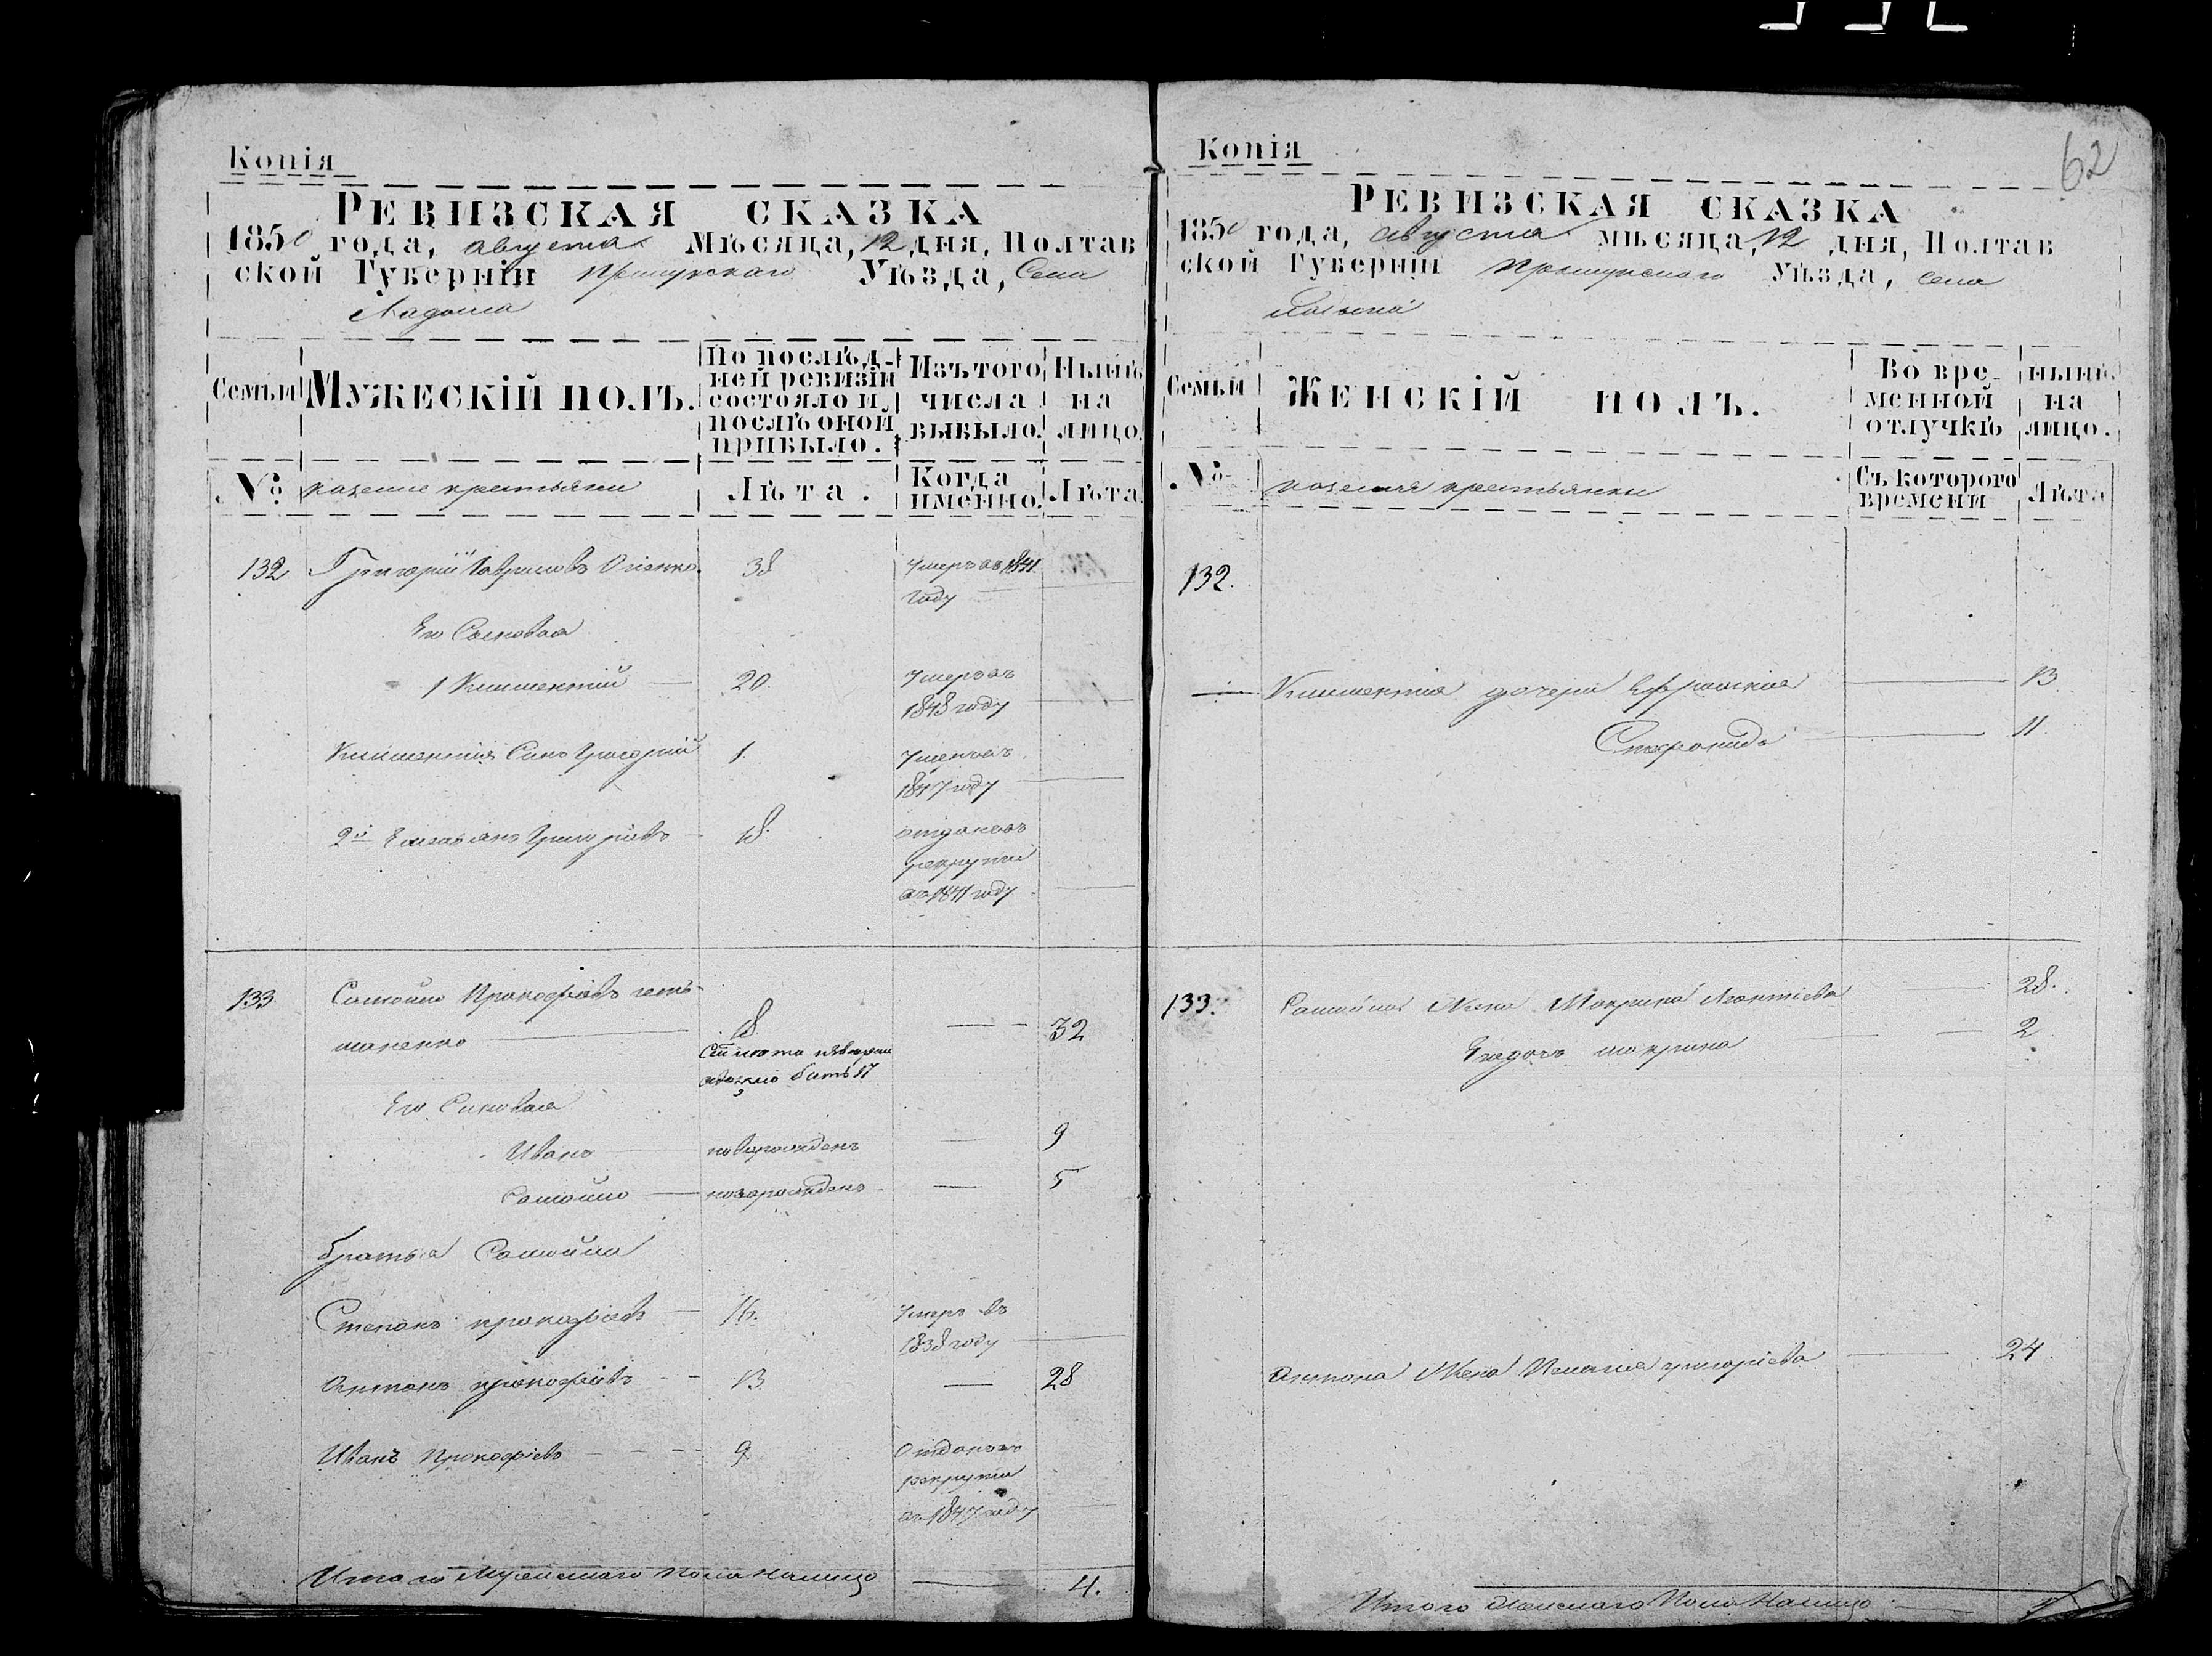 Копія
РЕВИЗСКАЯ СКАЗКА
1850 года, августа Мѣсяца, 12 дня, Полтав
ской Губерніи Прилукскаго Уѣзда, Села
Ладана
Семьи
МУЖЕСКІЙ ПОЛЪ.
По послѣд-
ней ревизіи
состояло и
послѣ оной
прибыло.
Изъ того
числа
выбыло.
Нынѣ
на
лицо.
№
казенные крестьяне
Лѣта.
Когда
именно.
Лѣта
132 Григорій Гавриловъ 38 умеръ въ 1841
году
Его Сыновья
1 Климентій 20 умеръ въ
1848 году
Климентія Сынъ Григорій 1. умеръ въ
1847 году
2й Григорьевъ 18. отданъ въ
рекруты
въ 1841 году
133 Самойло Прокофіевъ
маненко 18 32
должно быть 17
Его Сыновья
Иванъ новорожденъ 9
Самойло новорожденъ 5
братья Самойла
Степанъ прокофіевъ 16. умеръ въ
1838 году
Антонъ прокофіевъ 13 28
Иванъ Прокофіевъ 9 Отданъ въ
рекруты
въ 1847 году
Итого Мужескаго Пола налицо 4.
62
Копія
РЕВИЗСКАЯ СКАЗКА
1850 года, августа мѣсяца, 12 дня, Полтав
ской Губерніи Прилукскаго Уѣзда, села
Семьи
ЖЕНСКІЙ ПОЛЪ.
Во вре-
менной
отлучкѣ
нынѣ
на
лицо.
№
казенныя крестьянки
Съ котораго
времени
Лѣта
132.
Климентія дочери Ефросинія 13
11.
133. Самойла Жена Макрина Леонтіева 28.
Его дочь макрина 2
Антона Жена Пелагія григоріева 24
Итого Женскаго Пола Налицо